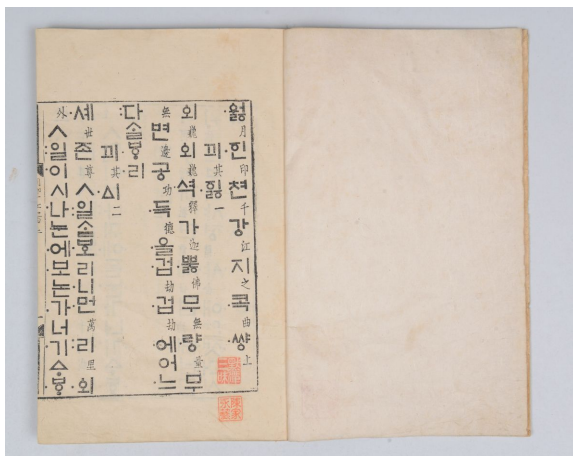 ᅌᅯᇙ月ᅙᅵᆫ印쳔千강江지之콕曲썅上
끠其ᅙᅵᇙ一
ᅌᅬ巍ᅌᅬ巍셕釋가迦뿛佛무無량量무
無변邊공功득德을겁劫겁劫에어느
다ᄉᆞᆯᄫᆞ리
끠其ᅀᅵ二
셰世존尊ㅅ일ᄉᆞᆯᄫᅩ리니먼萬리里ᅌᅬ
外ㅅ일이시나눈에보논가너기ᅀᆞᄫᆞ